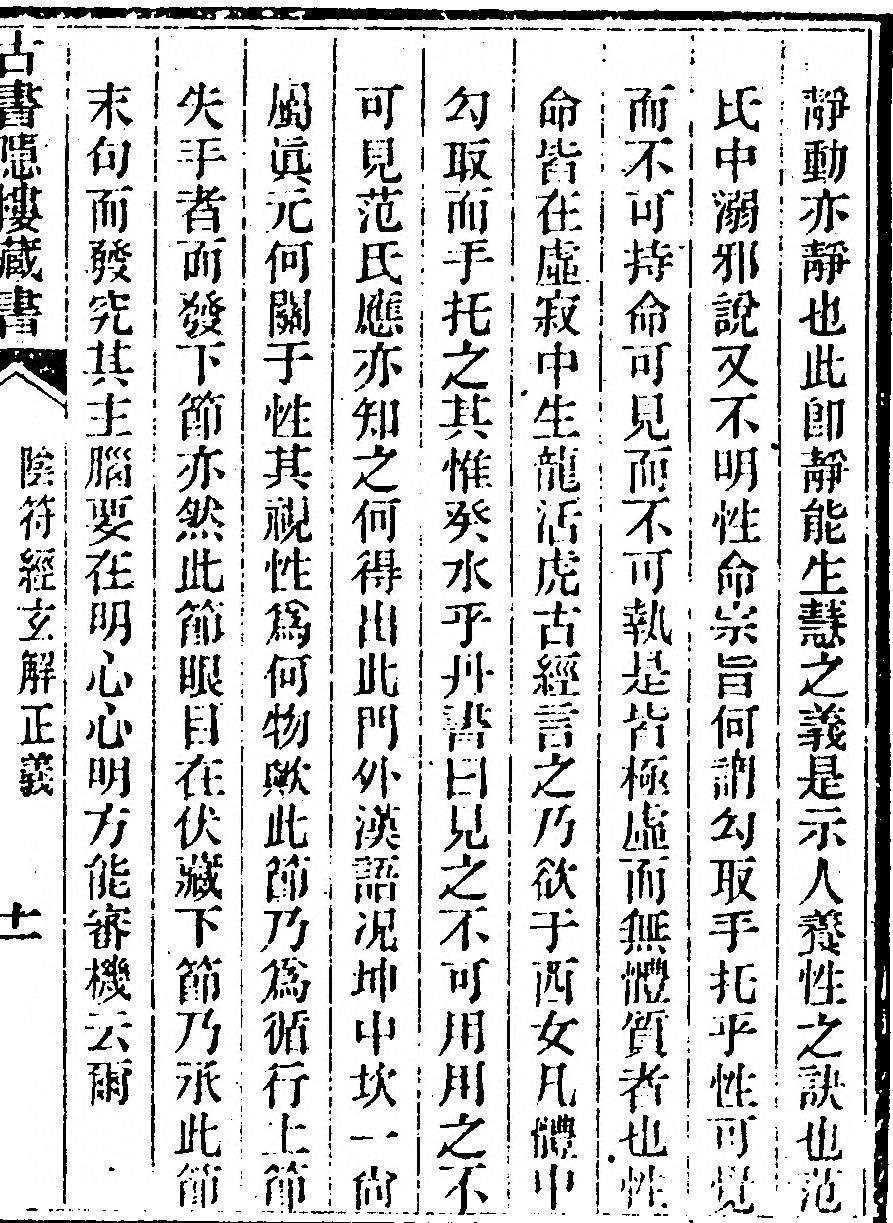 靜動亦靜也此卽靜能生慧之義是示人養性之訣也范
氏中溺邪說又不明性命宗旨何謂勾取手托乎性可覺
而不可持命可見而不可執是皆極虛而無體質者也性
命皆在虛寂中生龍活虎古經言之乃欲于西女凡體中
勾取而手托之其惟癸水乎丹書曰見之不可用用之不
可見范氏應亦知之何得出此門外漢語况坤中坎一尙
屬眞元何關于性其視性爲何物歟此節乃爲循行上節
失手者而發下節亦然此節眼目在伏藏下節乃承此節
末句而發究其主腦要在明心心明方能審機云爾
古書隱樓藏書
陰符經玄解正義
十一